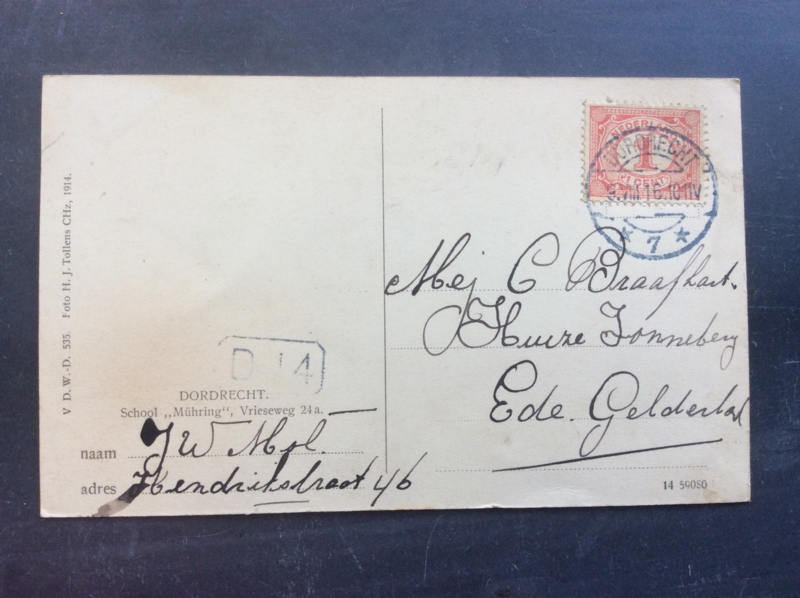 V D.W.-D. 535. Foto H. J. Tollens CHz, 1914.
NEDERLAND
1
CENT
DORDRECHT
VIII 16.10
7
Mej C Braafhart.
Huize Zonneberg
Ede. Gelderland
D 14
DORDRECHT.
School „Mühring", Vrieseweg 24a.
naam J W
adres Hendrikstraat 46
14 59080